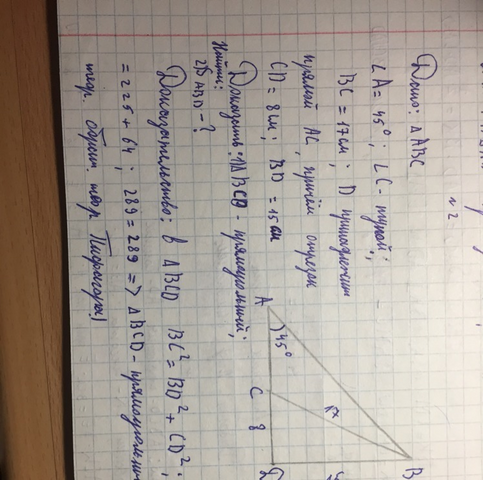 n 2
Дано: △ABC
∠A = 45°; ∠C - тупой;
BC = 17см; D принадлежит
прямой AC, причём отрезок
CD = 8см; BD = 15см
Доказать: 1) △BCD - прямоугольний;
Найти:
2) S ABD - ?
Доказательство: в △BCD BC² = BD² + CD²;
= 225 + 64; 289 = 289 => △BCD - прямоугольн
теор. Пифагора)
A
45°
C
8
17
B